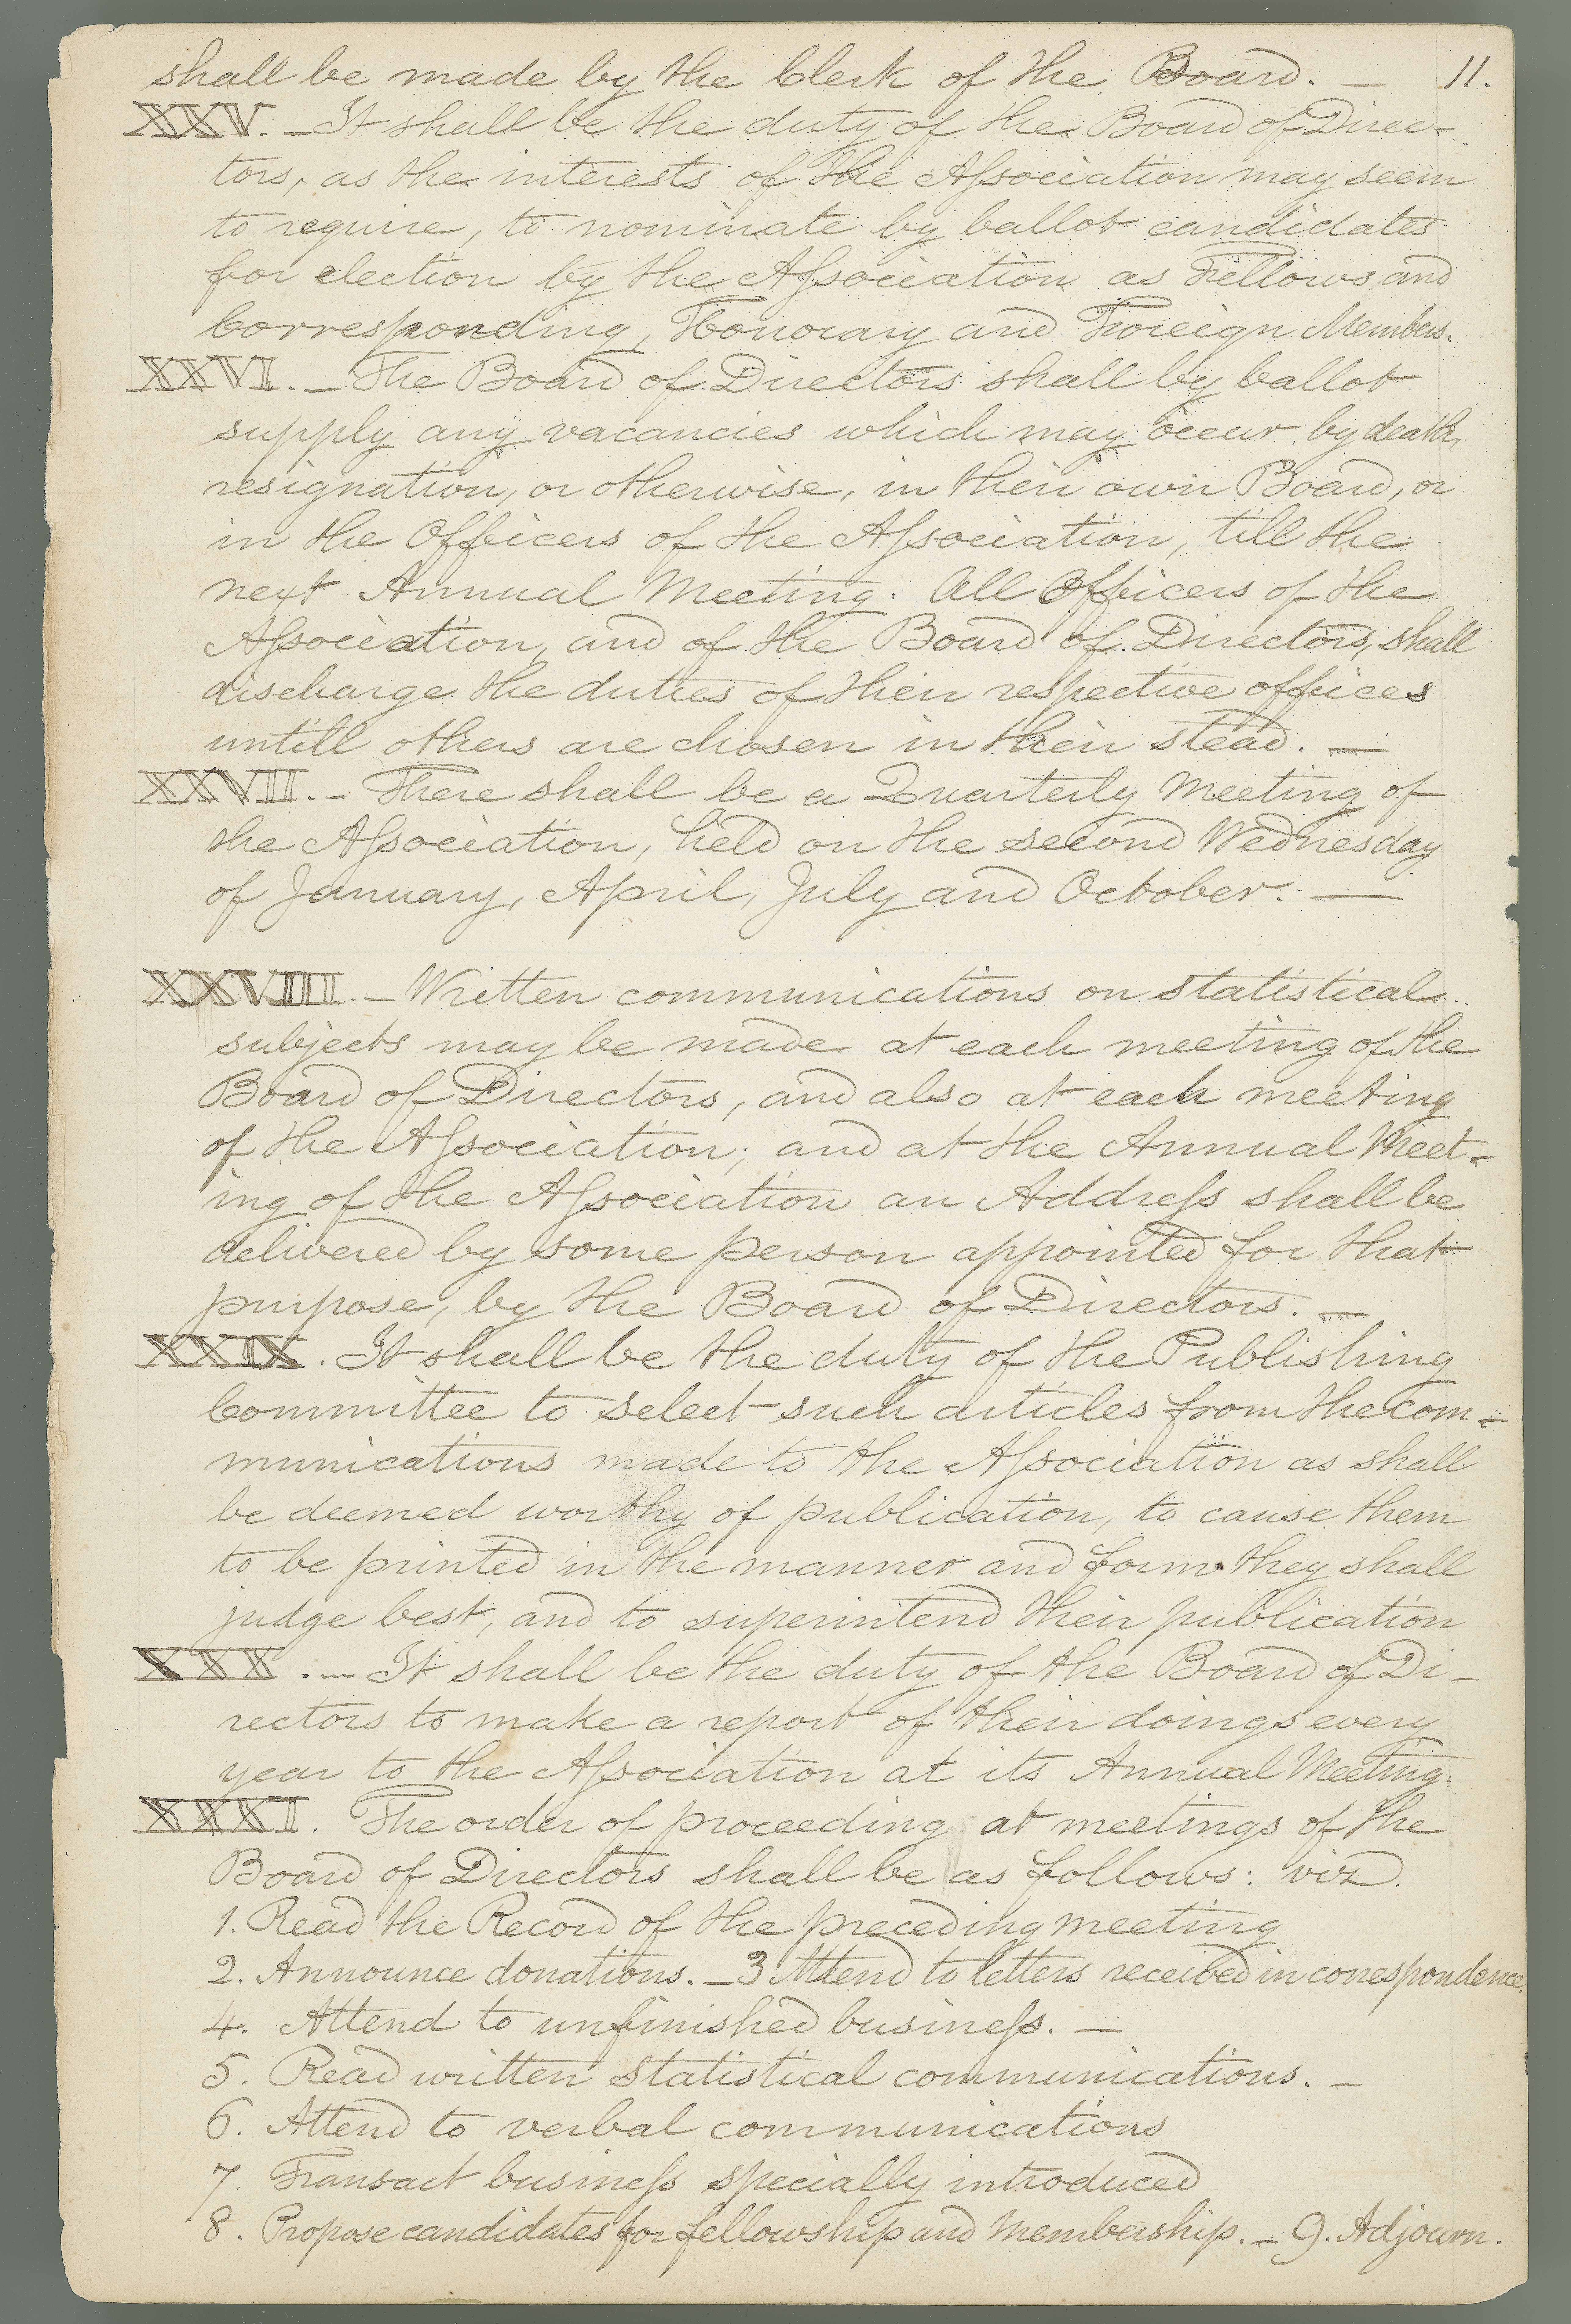 shall be made by the Clerk of the Board. — 11.
XXV. — It shall be the duty of the Board of Direc-
tors, as the interests of the Aſsociation may seem
to require, to nominate by ballot candidates
for election by the Aſsociation as Fellows and
Corresponding, Honorary and Foreign Members.
XXVI. — The Board of Directors shall by ballot
supply any vacancies which may occur by death,
resignation, or otherwise, in their own Board, or
in the Officers of the Aſsociation, till the
next Annual Meeting. All Officers of the
Aſsociation, and of the Board of Directors, shall
discharge the duties of their respective offices
untill others are chosen in their stead. —
XXVII. - There shall be a Quarterly Meeting of
the Aſsociation, held on the second Wednesday
of January, April, July and October. —
XXVIII. — Written communications on statistical
subjects may be made at each meeting of the
Board of Directors, and also at each meeting
of the Aſsociation; and at the Annual Meet-
ing of the Aſsociation an Addreſs shall be
delivered by some person appointed for that
purpose, by the Board of Directors. —
XXIX. It shall be the duty of the Publishing
Committee to select such articles from the com-
munications made to the Aſsociation as shall
be deemed worthy of publication, to cause them
to be printed in the manner and form they shall
judge best, and to superintend their publication
XXX. — It shall be the duty of the Board of Di-
rectors to make a report of their doings every
year to the Aſsociation at its Annual Meeting.
XXXI. The order of proceeding at meetings of the
Board of Directors shall be as follows: viz.
1. Read the Record of the preceding meeting
2. Announce donations. — 3 Attend to letters received in correspondence.
4. Attend to unfinished busineſs. —
5. Read written statistical communications. —
6. Attend to verbal communications
7. Transact busineſs specially introduced
8. Propose candidates for fellowship and membership. — 9. Adjourn.